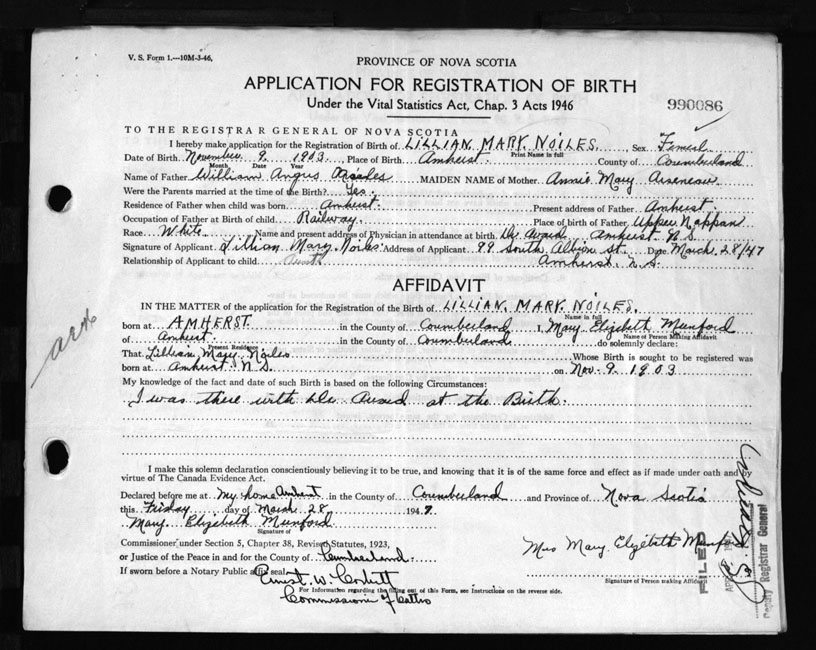 V. S. Form 1.—10M-3-46,
PROVINCE OF NOVA SCOTIA
APPLICATION FOR REGISTRATION OF BIRTH
Under the Vital Statistics Act, Chap. 3 Acts 1946
990086
TO THE REGISTRAR GENERAL OF NOVA SCOTIA
I hereby make application for the Registration of Birth of LILLIAN MARY NOILES. Sex
Print Name in full
Date of Birth November 9 1903, Place of Birth Amherst. County of Coumberland
Month Date Year
Name of Father William Angus Noiles MAIDEN NAME of Mother Annie Mary Arseneau
Were the Parents married at the time of the Birth? Yes.
Residence of Father when child was born Amhurst. Present address of Father Amherst.
Occupation of Father at Birth of child Railway. Place of birth of Father Upper Nappan
Race White Name and present address of Physician in attendance at birth Dr Avard Amhurst N S.
Signature of Applicant Lillian Mary Noiles Address of Applicant 99 South Albion St. Date March 28/47
Relationship of Applicant to child Amherst N S.
AFFIDAVIT
IN THE MATTER of the application for the Registration of the Birth of LILLIAN MARY NOILES.
Name in full
born at AMHERST. in the County of Coumberland I, Mary Elizibeth Munford
Name of Person Making Affidavit
of Amhurst in the County of Coumberland do solemnly declare:
Present Residence
That Lillian Mary Noiles Whose Birth is sought to be registered was
born at Amhurst N S. on Nov-9 1903
My knowledge of the fact and date of such Birth is based on the following Circumstances:
I was there with Dr Avard at the Birth.
I make this solemn declaration conscientiously believing it to be true, and knowing that it is of the same force and effect as if made under oath and by
virtue of The Canada Evidence Act.
Declared before me at My home Amherst in the County of Coumberland and Province of Nova Scotia
this Friday day of March 28 1947
Mary Elizibeth Munford
Signature of
Commissioner under Section 5, Chapter 38, Revised Statutes, 1923,
or Justice of the Peace in and for the County of Cumberland.
Mrs Mary Elizibeth Munford
If sworn before a Notary Public affix seal
Ernest W. Corbett
Signature of Person making Affidavit
For Information regarding the filling out of this Form, see Instructions on the reverse side.
FILED
Deputy Registrar General